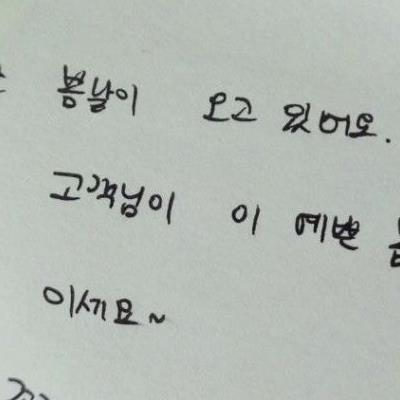 봄날이 오고 있어요.
고객님이 이 예쁜
이시기요~